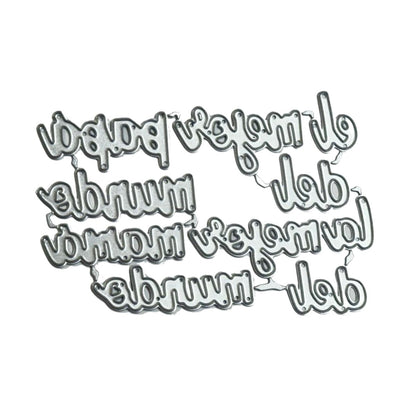 el mejor papá
del mundo
la mejor mamá
del mundo